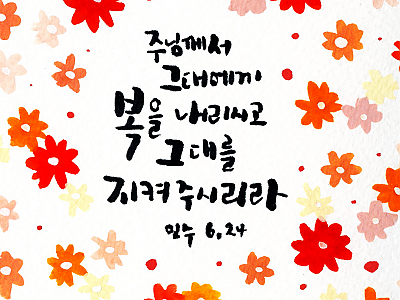 주님께서
그대에게
복을 내리시고
그대를
지켜 주시리라
민수 6,24